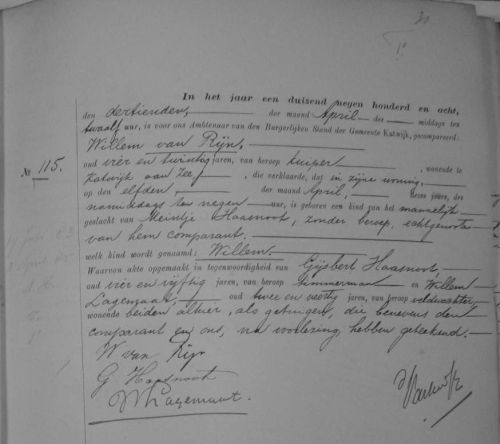 30
In het jaar een duizend negen honderd en acht,
den dertienden, der maand April des middags ten
twaalf uur, is voor ons Ambtenaar van den Burgerlijken Stand der Gemeente Katwijk, gecompareerd:
Willem van Rijn,
№ 115.
oud vier en twintig jaren, van beroep kuiper, wonende te
Katwijk aan Zee, die verklaarde, dat in zijne woning,
op den elfden der maand April, dezes jaars, des
namiddags ten negen uur, is geboren een kind van het mannelijk
geslacht van Meintje Haasnoot, zonder beroep, echtgenoote
van hem comparant.
welk kind wordt genaamd: Willem.
Waarvan akte opgemaakt in tegenwoordigheid van Gijsbert Haasnoot,
oud vier en vijftig jaren, van beroep timmerman en Willem
Lagemaat, oud twee en veertig jaren, van beroep veldwachter,
wonende beiden alhier, als getuigen, die benevens den
comparant en ons, na voorlezing, hebben geteekend.
W van Rijn
G Haasnoot
W Lagemaat.